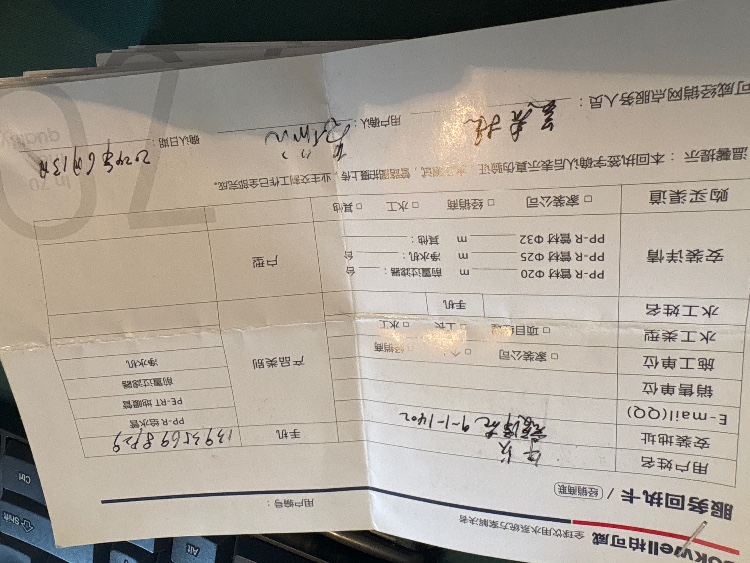 okwell柏可威 全球饮用水系统方案解决者
服务回执卡 / 经销商联 用户编号：
用户姓名
安装地址 9-1-1402 手机 13935698929
E-mail(QQ)
销售单位
施工单位 □ 家装公司
水工类型 □ 项目 □ 水工
水工姓名 手机
产品类别
PP-R 给水管
PE-RT 地暖管
前置过滤器
净水机
安装详情
PP-R 管材 Φ20 m 前置过滤器： 台
PP-R 管材 Φ25 m 净水机： 台
PP-R 管材 Φ32 m 其他：
户型
购买渠道 □ 家装公司 □ 经销商 □ 水工 □ 其他
温馨提示：本回执签字确认后表示真伪验证、水 测试，管路图拍摄上传，业主交到工作已全部完成。
可威经销网点服务人员： 用户确认： 确认日期： 2024年6月13日
Ctrl
Shift
Alt